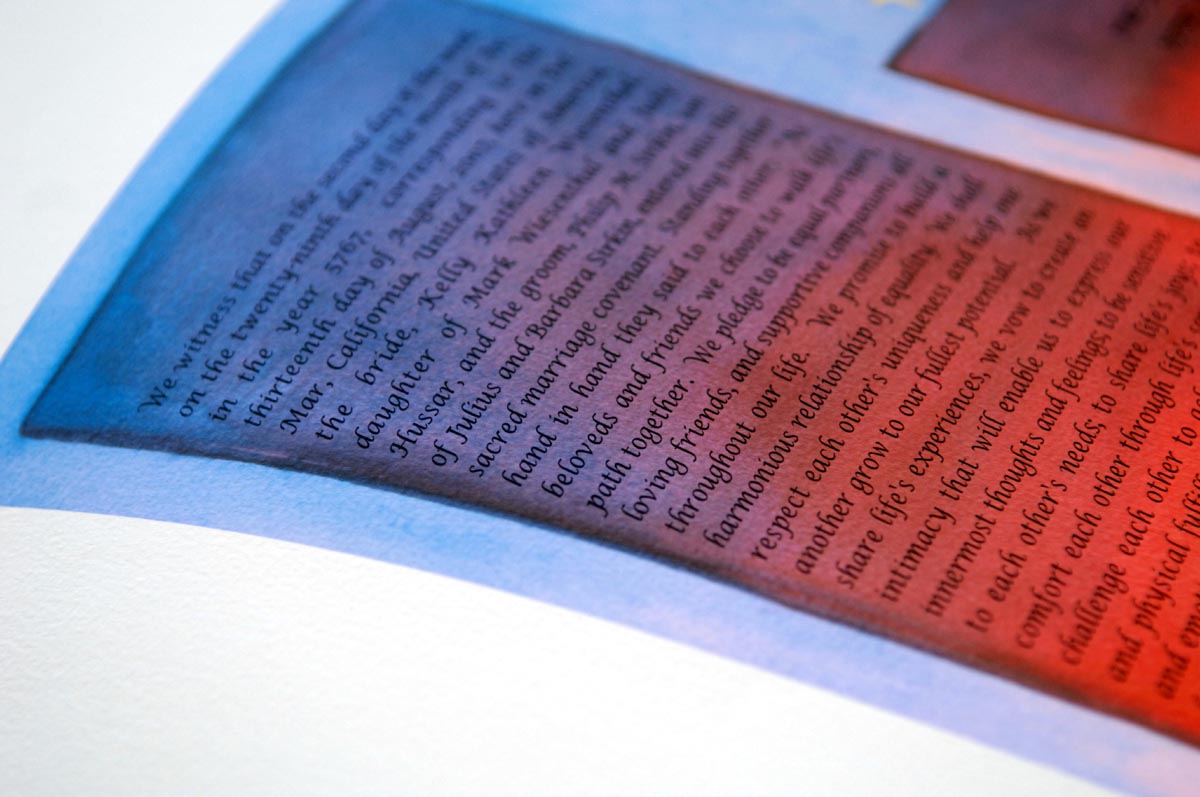 We witness that on the second day of the week
on the twenty-ninth day of the month of
in the year 5767, corresponding to the
thirteenth day of August, 2007, here in Del
Mar, California, United States of America,
the bride, Kelly Kathleen
daughter of Mark Wiesenthal and Judy
Hussar, and the groom, Philip N. Sirkin, son
of Julius and Barbara Sirkin, entered into this
sacred marriage covenant. Standing together
hand in hand they said to each other: "As
beloveds and friends we choose to walk life's
path together. We pledge to be equal partners,
loving friends, and supportive companions all
throughout our life. We promise to build a
harmonious relationship of equality. We shall
respect each other's uniqueness and help one
another grow to our fullest potential. As we
share life's experiences, we vow to create an
intimacy that will enable us to express our
innermost thoughts and feelings; to be sensitive
to each other's needs; to share life's joys; to
comfort each other through life's
challenge each other to
and physical
and